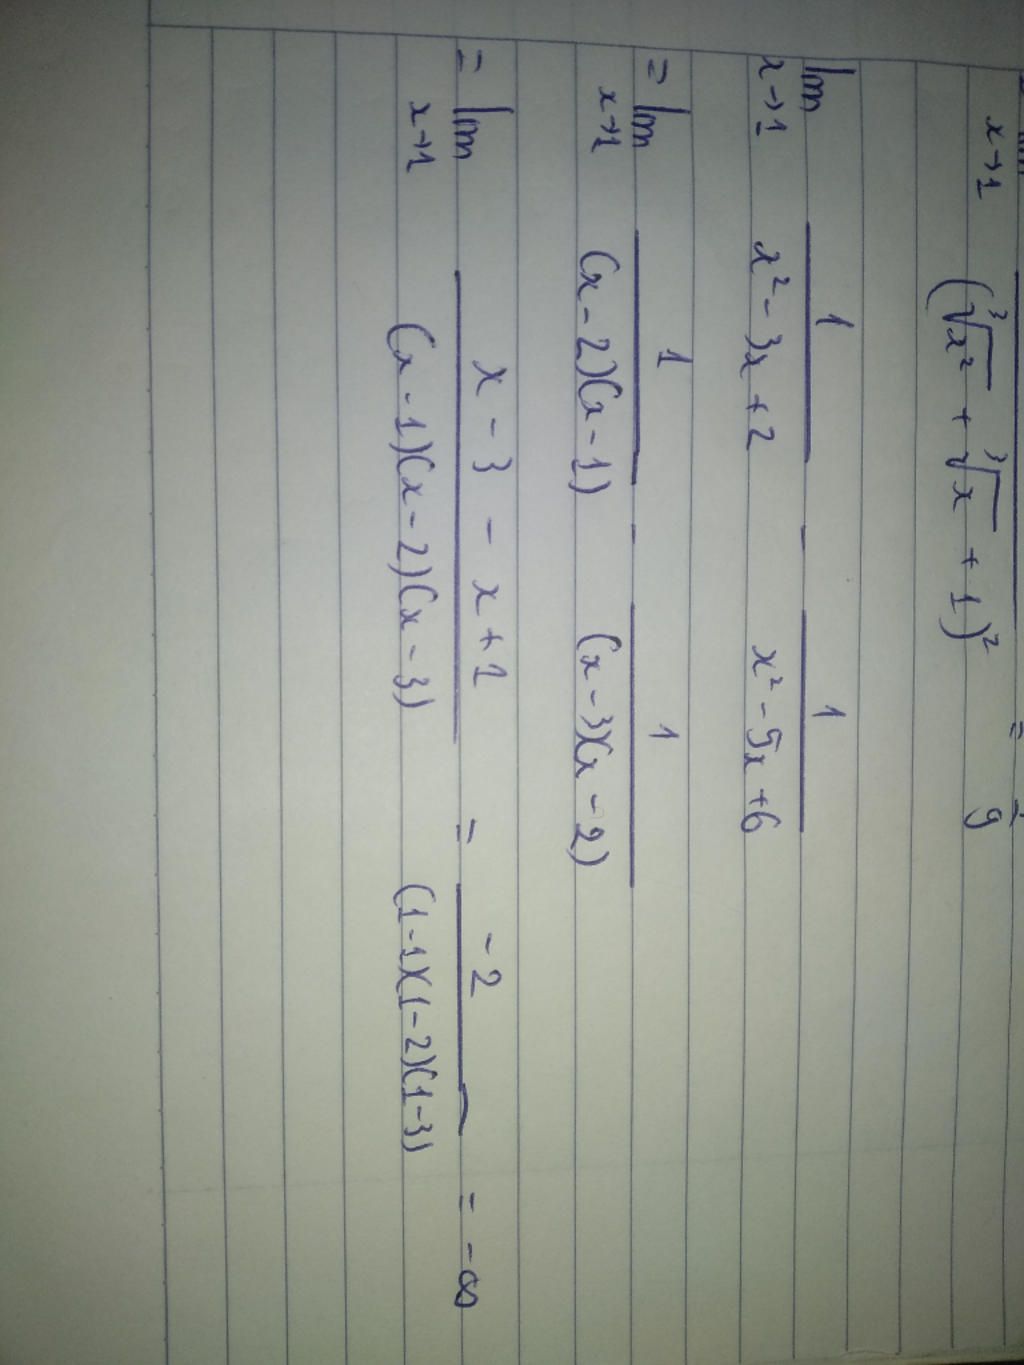 lim x→1 ——— / (∛x² + ∛x + 1)² = 1/9
lim x→1 1/(x² - 3x + 2) - 1/(x² - 5x + 6)
= lim x→1 1/((x - 2)(x - 1)) - 1/((x - 3)(x - 2))
= lim x→1 (x - 3 - x + 1)/((x - 1)(x - 2)(x - 3)) = -2/((1-1)(1-2)(1-3)) = -∞